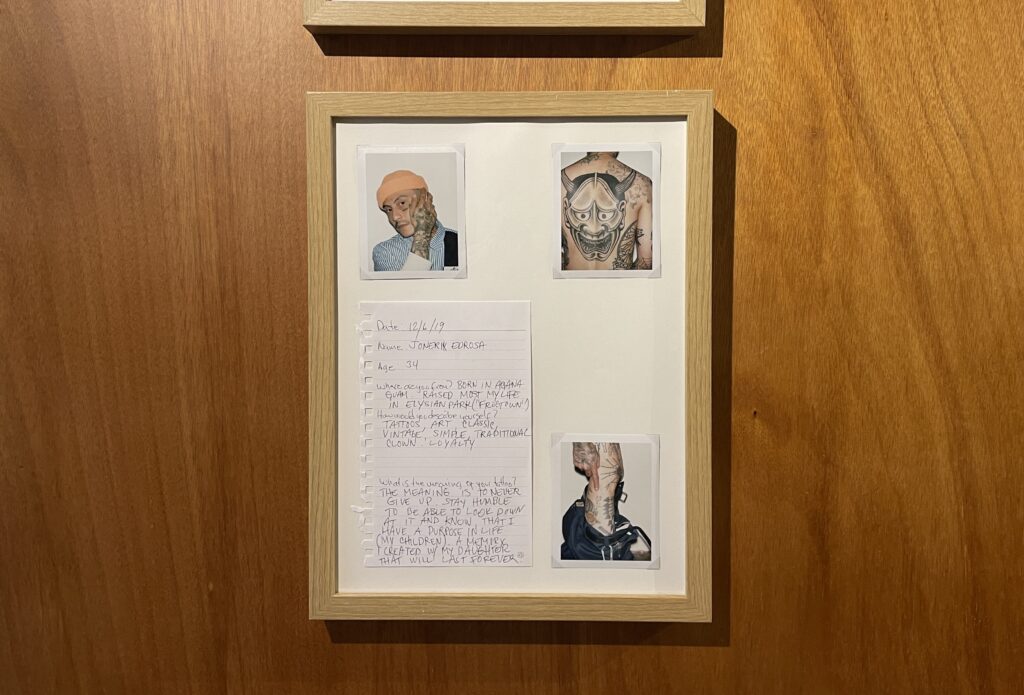 Date 12/6/19
Name JONERIK EUROSA
Age 34
Where are you from? BORN IN AGANA
GUAM. RAISED MOST MY LIFE
IN ELYSIAN PARK ("FROGTOWN")
How would you describe yourself?
TATTOOS, ART, CLASSIC,
VINTAGE, SIMPLE, TRADITIONAL
CLOWN. LOYALTY
What is the meaning of your tattoo?
THE MEANING IS TO NEVER
GIVE UP. STAY HUMBLE
TO BE ABLE TO LOOK DOWN
AT IT AND KNOW THAT I
HAVE A PURPOSE IN LIFE
(MY CHILDREN). A MEMORY
I CREATED W/ MY DAUGHTER
THAT WILL LAST FOREVER.